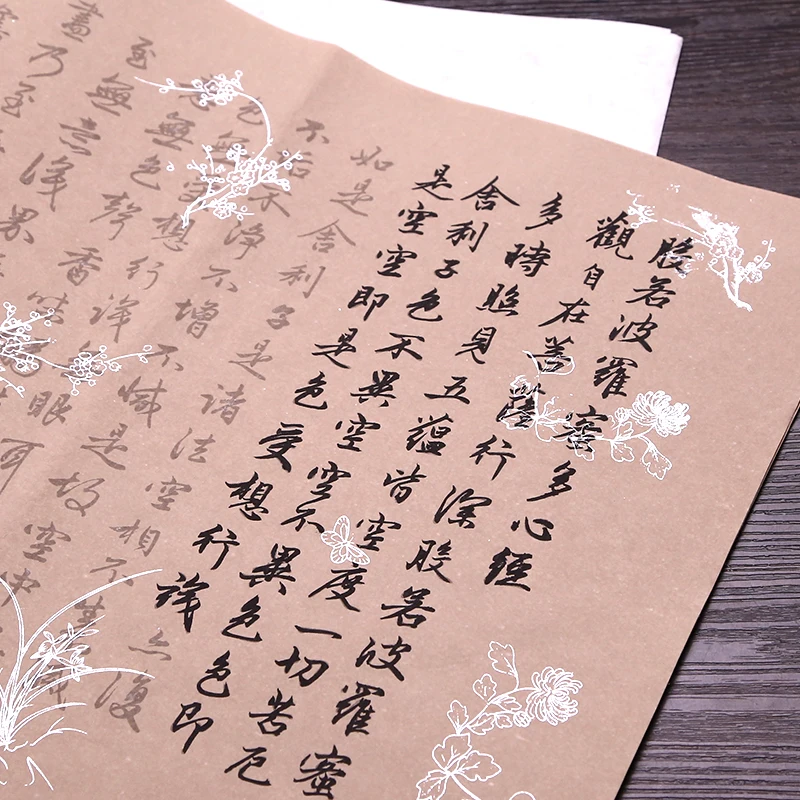 般若波羅蜜多心經
觀自在菩薩行深般若波羅蜜
多時照見五蘊皆空度一切苦厄
舍利子色不異空空不異色色即
是空空即是色受想行識亦復
如是舍利子是諸法空相不
不垢不淨不增不減是故空中
色無受想行識無眼耳
意無色聲香味
至無意識界
盡乃至